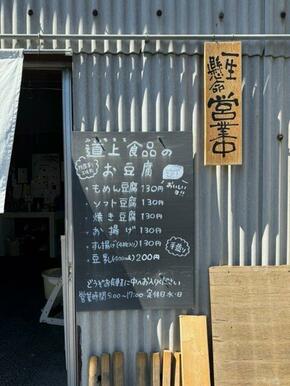 一生懸命営業中
道上食品の
お豆腐
おいしいヨ!!
・もめん豆腐 130円
・ソフト豆腐 130円
・焼き豆腐 130円
・お揚げ 130円
・すし揚げ(4枚入り) 130円
手揚げ
・豆乳(500ml) 200円
どうぞお気軽に中へお入りください
営業時間 8:00〜17:00 定休日 水・日